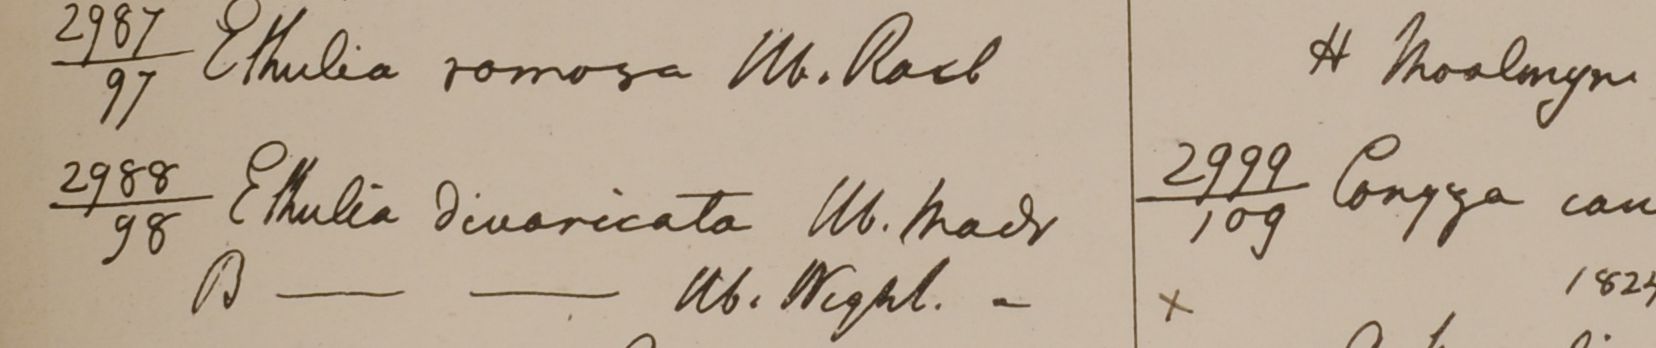 2987
97 Ethulia ramosa Hb. Roxb
2988
98 Ethulia divaricata Hb. Madr
B — — Hb. Wight. -
H Moalmyn
2999
109 Congea
x 1824